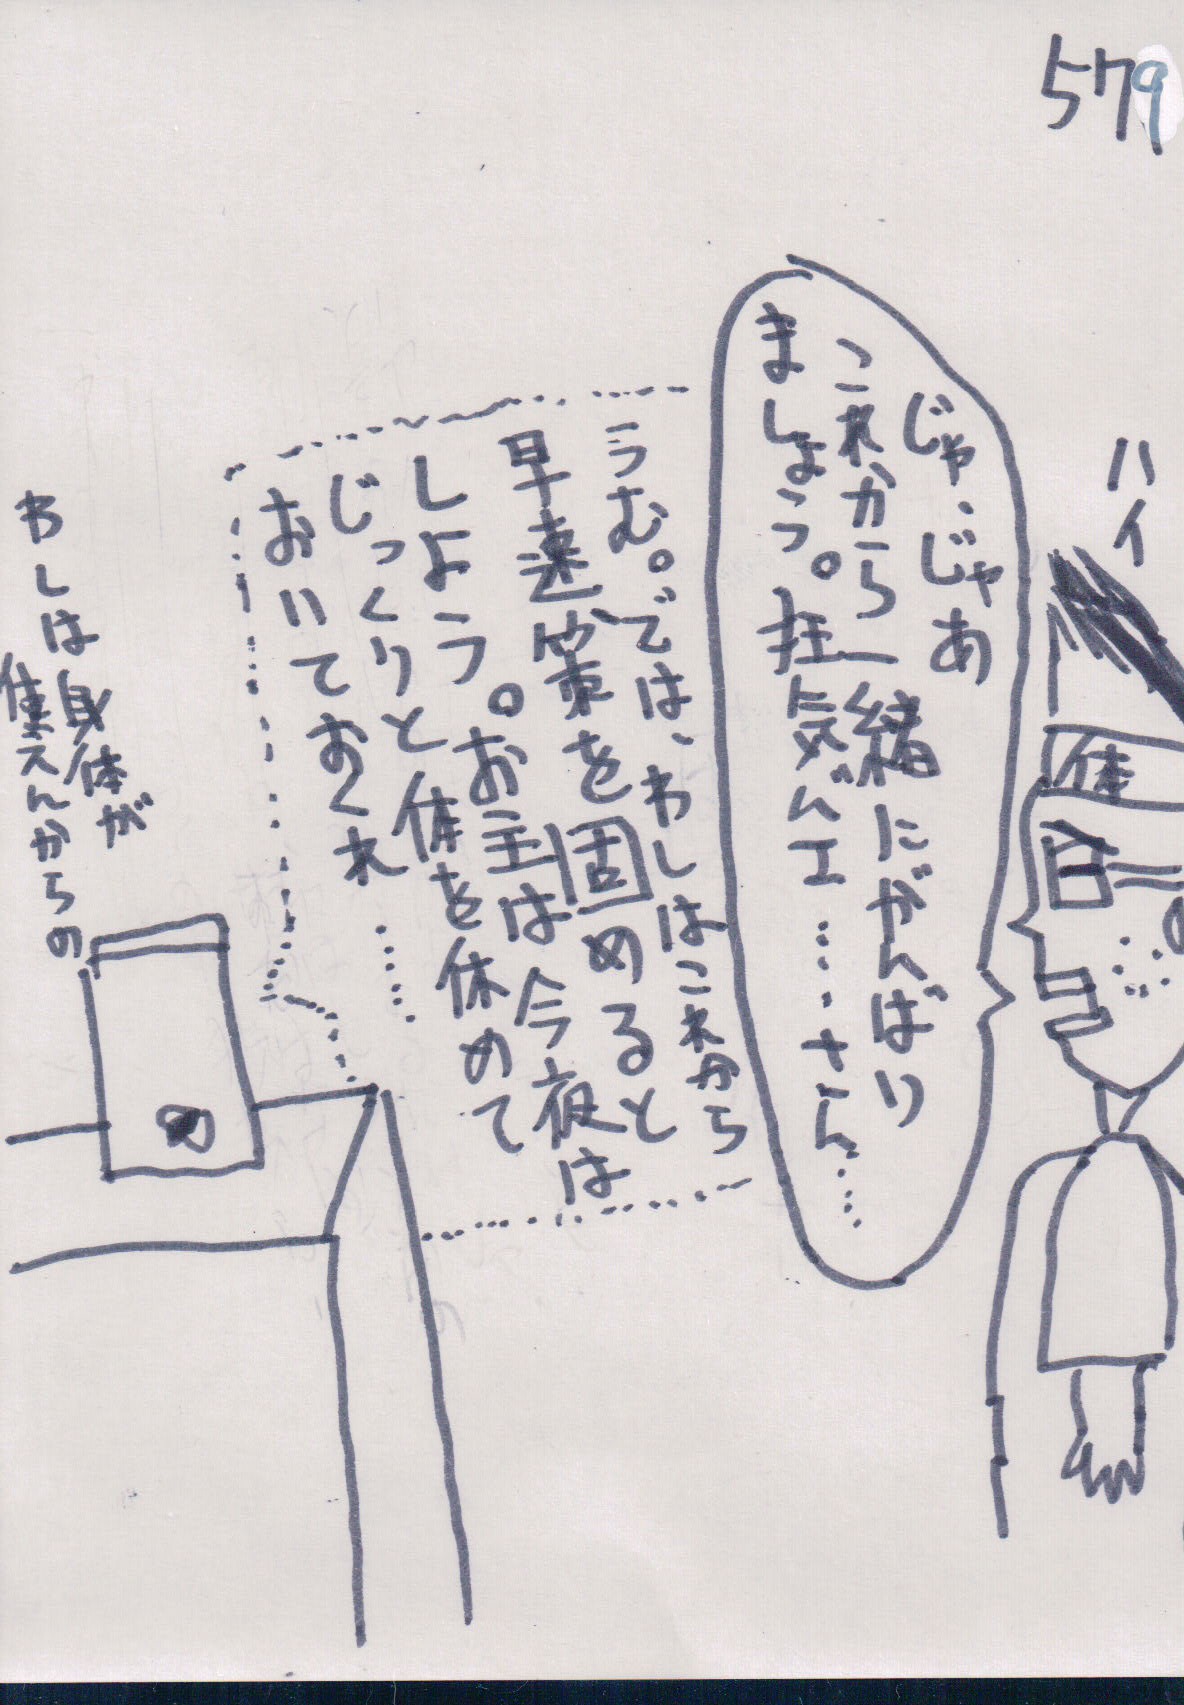 579
ハイ
体
じゃ、じゃあ
これから一緒にがんばり
ましょう。狂気ずムエ……さん……
うむ。では、わしはこれから
早速策を固めると
しよう。お主は今夜は
じっくりと体を休めて
おいておくれ……
わしは身体が
使えんからの